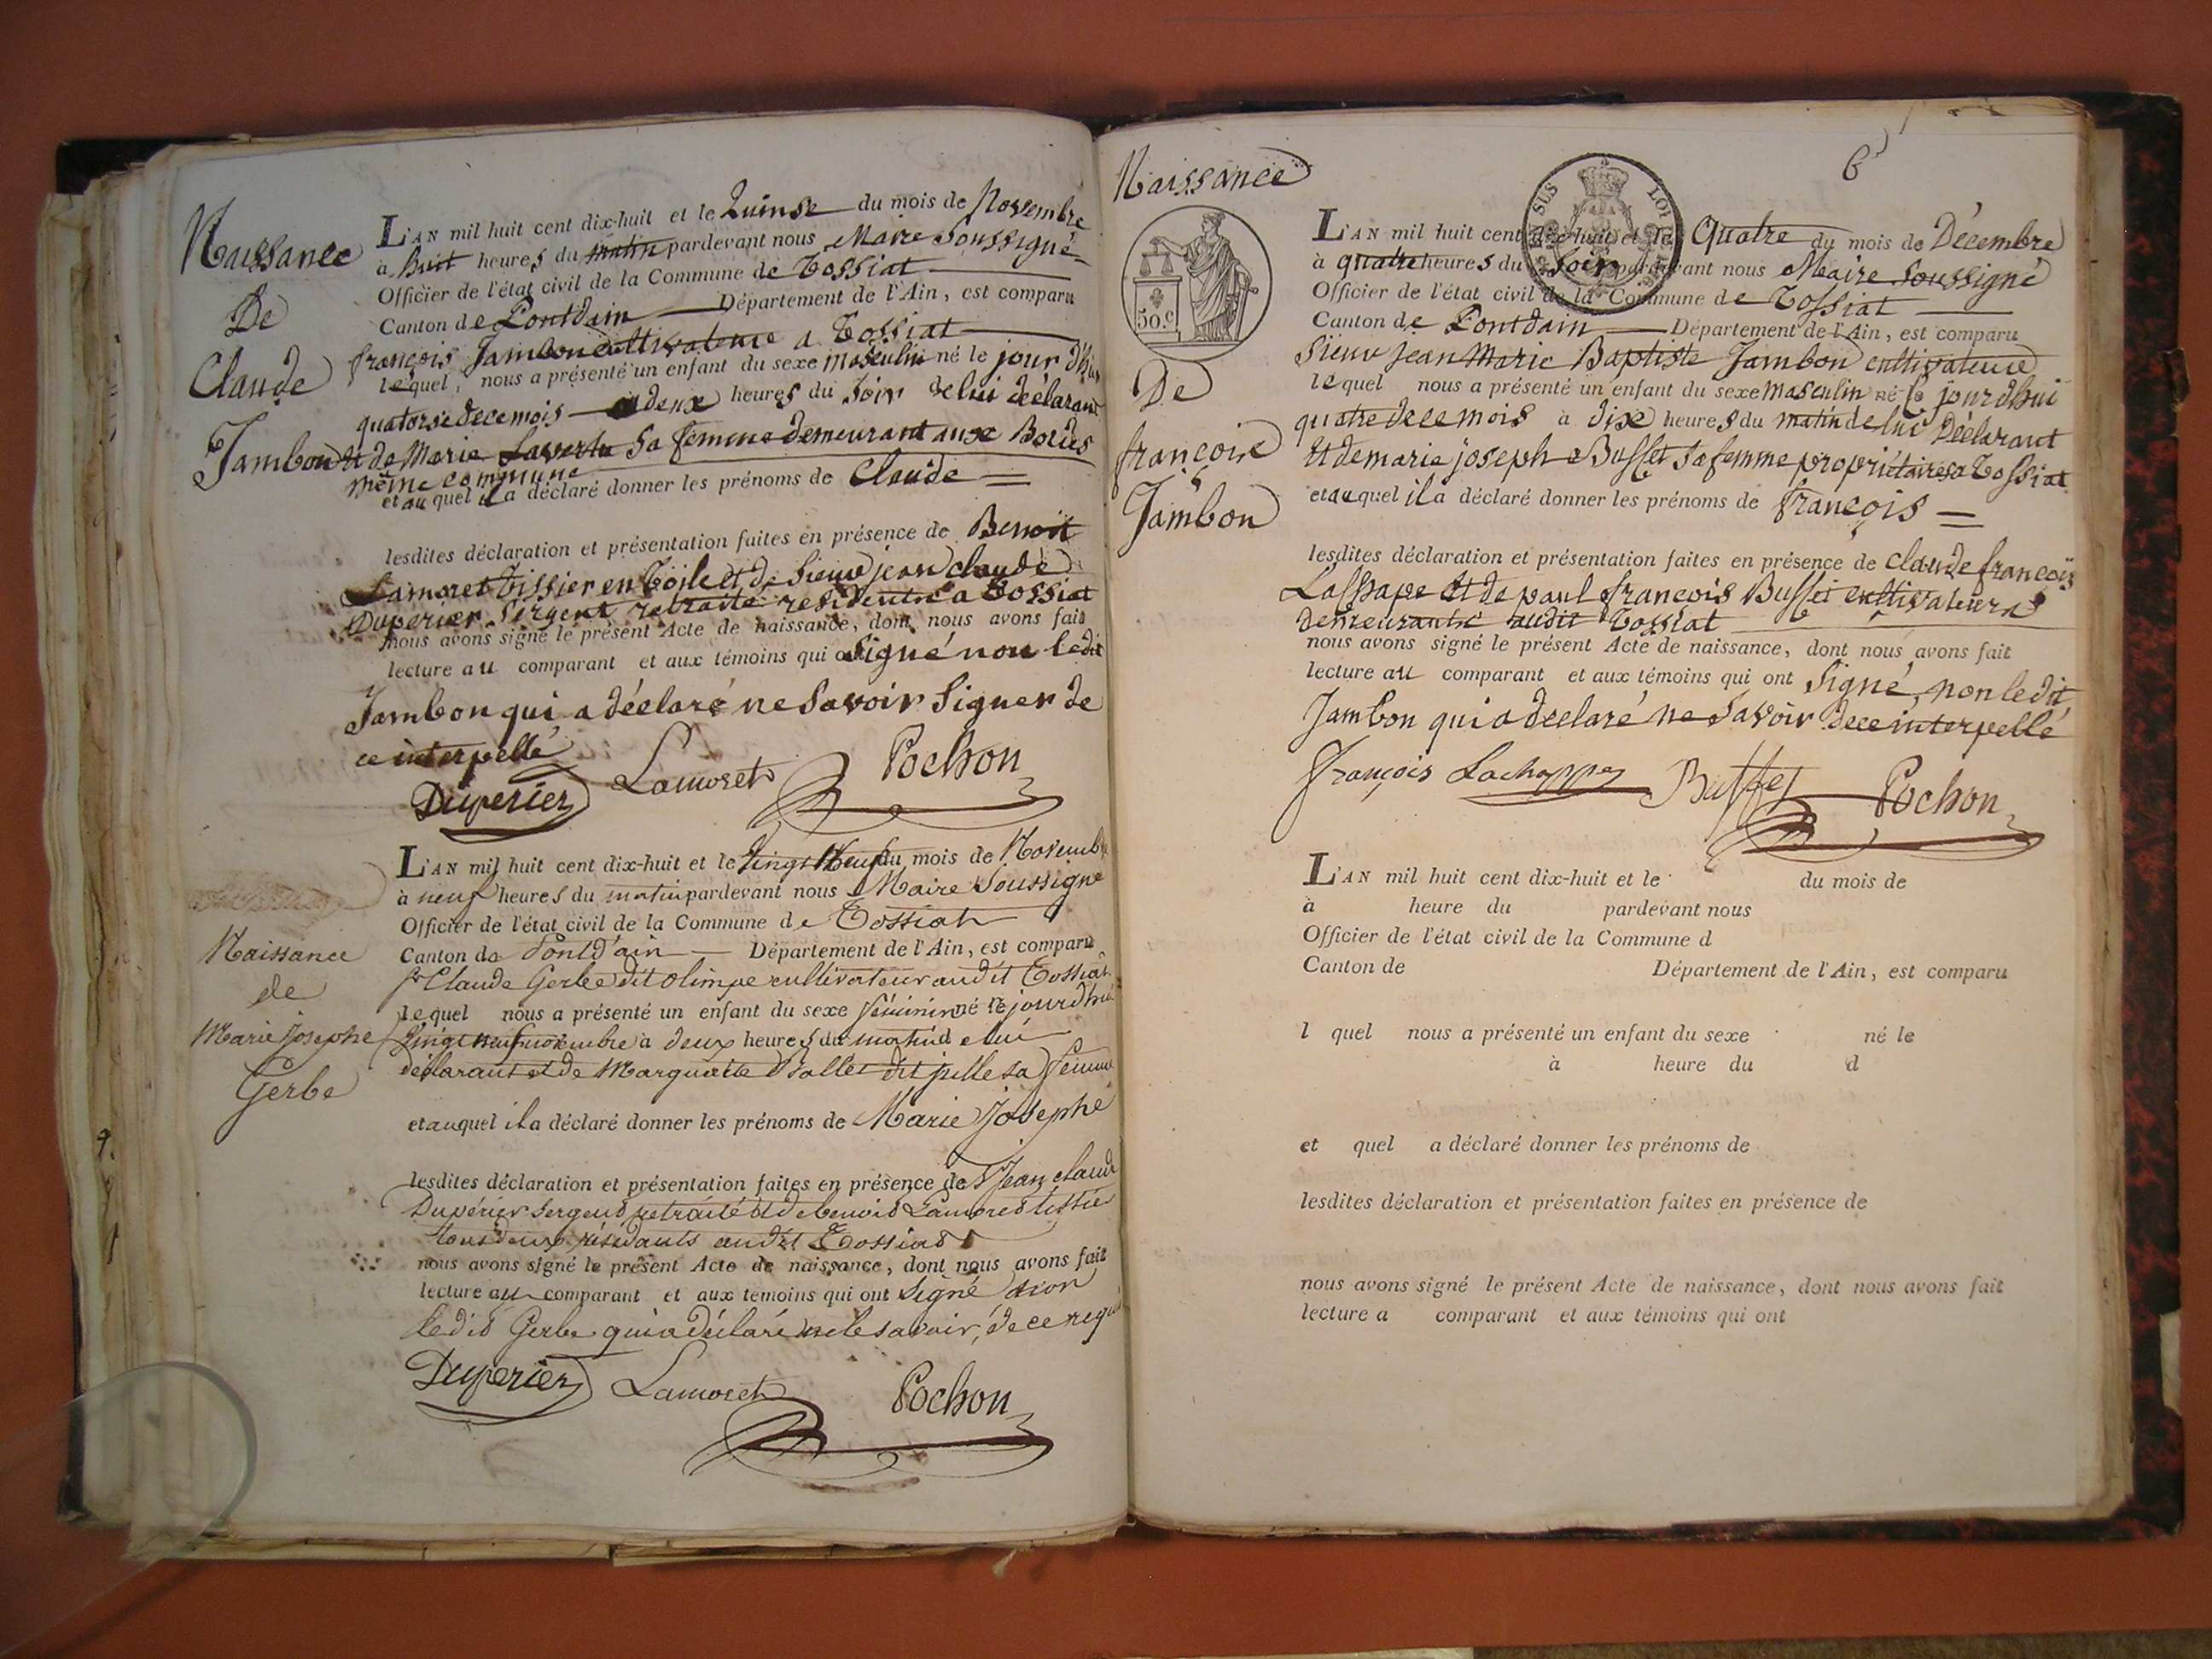 Naissance
De
Claude
Jambon
L'AN mil huit cent dix-huit et le Quinse du mois de Novembre
à huit heures du matin pardevant nous Maire Soussigné
Officier de l'état civil de la Commune de Tossiat
Canton de Pontdain Département de l'Ain, est comparu
françois Jambon cultivateur a Tossiat
lequel, nous a présenté un enfant du sexe masculin né le jour d'hier
quatorse de ce mois a deux heures du Soir de lui déclarant
et de Marie Sa femme demeurant aux Bories
même commune
et au quel il a déclaré donner les prénoms de Claude
lesdites déclaration et présentation faites en présence de Benoit
Lamoret tissier en toile et de Sieur jean claude
Duperier Sergent retraité residents a Tossiat
nous avons signé le présent Acte de naissance, dont nous avons fait
lecture au comparant et aux témoins qui ont Signé non ledit
Jambon qui a déclaré ne Savoir Signer de
ce interpellé
Duperier Lamoret Pochon
Naissance
de
Marie Josephe
Gerbe
L'AN mil huit cent dix-huit et le Vingt Neuf du mois de Novembre
à neuf heures du matin pardevant nous Maire Soussigné
Officier de l'état civil de la Commune de Tossiat
Canton de Pontd'ain Département de l'Ain, est comparu
Sr Claude Gerbe dit olimpe cultivateur audit Tossiat
lequel nous a présenté un enfant du sexe féminin né le jourd'hui
Vingt neuf novembre à deux heures du matin de lui
déclarant et de Marguerite Ballet dit pille sa femme
et auquel il a déclaré donner les prénoms de Marie Josephe
lesdites déclaration et présentation faites en présence de Sr Jean claude
Dupérier Sergent retraité et de benoit Lamoret tissier
tous deux résidants audit Tossiat
nous avons signé le présent Acte de naissance, dont nous avons fait
lecture au comparant et aux témoins qui ont Signé non
ledit Gerbe qui a déclaré ne le savoir, de ce requis
Duperier Lamoret Pochon
6
Naissance
50.c
De
françois
Jambon
SUS LOI
L'AN mil huit cent dix-huit et le Quatre du mois de Décembre
à quatre heures du Soir pardevant nous Maire Soussigné
Officier de l'état civil de la Commune de Tossiat
Canton de Pontdain Département de l'Ain, est comparu
Sieur Jean Marie Baptiste Jambon cultivateur
lequel nous a présenté un enfant du sexe masculin né le jourdhui
quatre de ce mois à dix heures du matin de lui Déclarant
Et de marie joseph Buffet Sa femme propriétaires a Tossiat
et auquel il a déclaré donner les prénoms de françois
lesdites déclaration et présentation faites en présence de claude françois
Lashape Et de paul françois Buffet cultivateurs
demeurants audit Tossiat
nous avons signé le présent Acte de naissance, dont nous avons fait
lecture au comparant et aux témoins qui ont Signé, non ledit
Jambon qui a declaré ne Savoir de ce interpellé
François Lachappe Buffet Pochon
L'AN mil huit cent dix-huit et le du mois de
à heure du pardevant nous
Officier de l'état civil de la Commune d
Canton de Département de l'Ain, est comparu
l quel nous a présenté un enfant du sexe né le
à heure du d
et quel a déclaré donner les prénoms de
lesdites déclaration et présentation faites en présence de
nous avons signé le présent Acte de naissance, dont nous avons fait
lecture a comparant et aux témoins qui ont